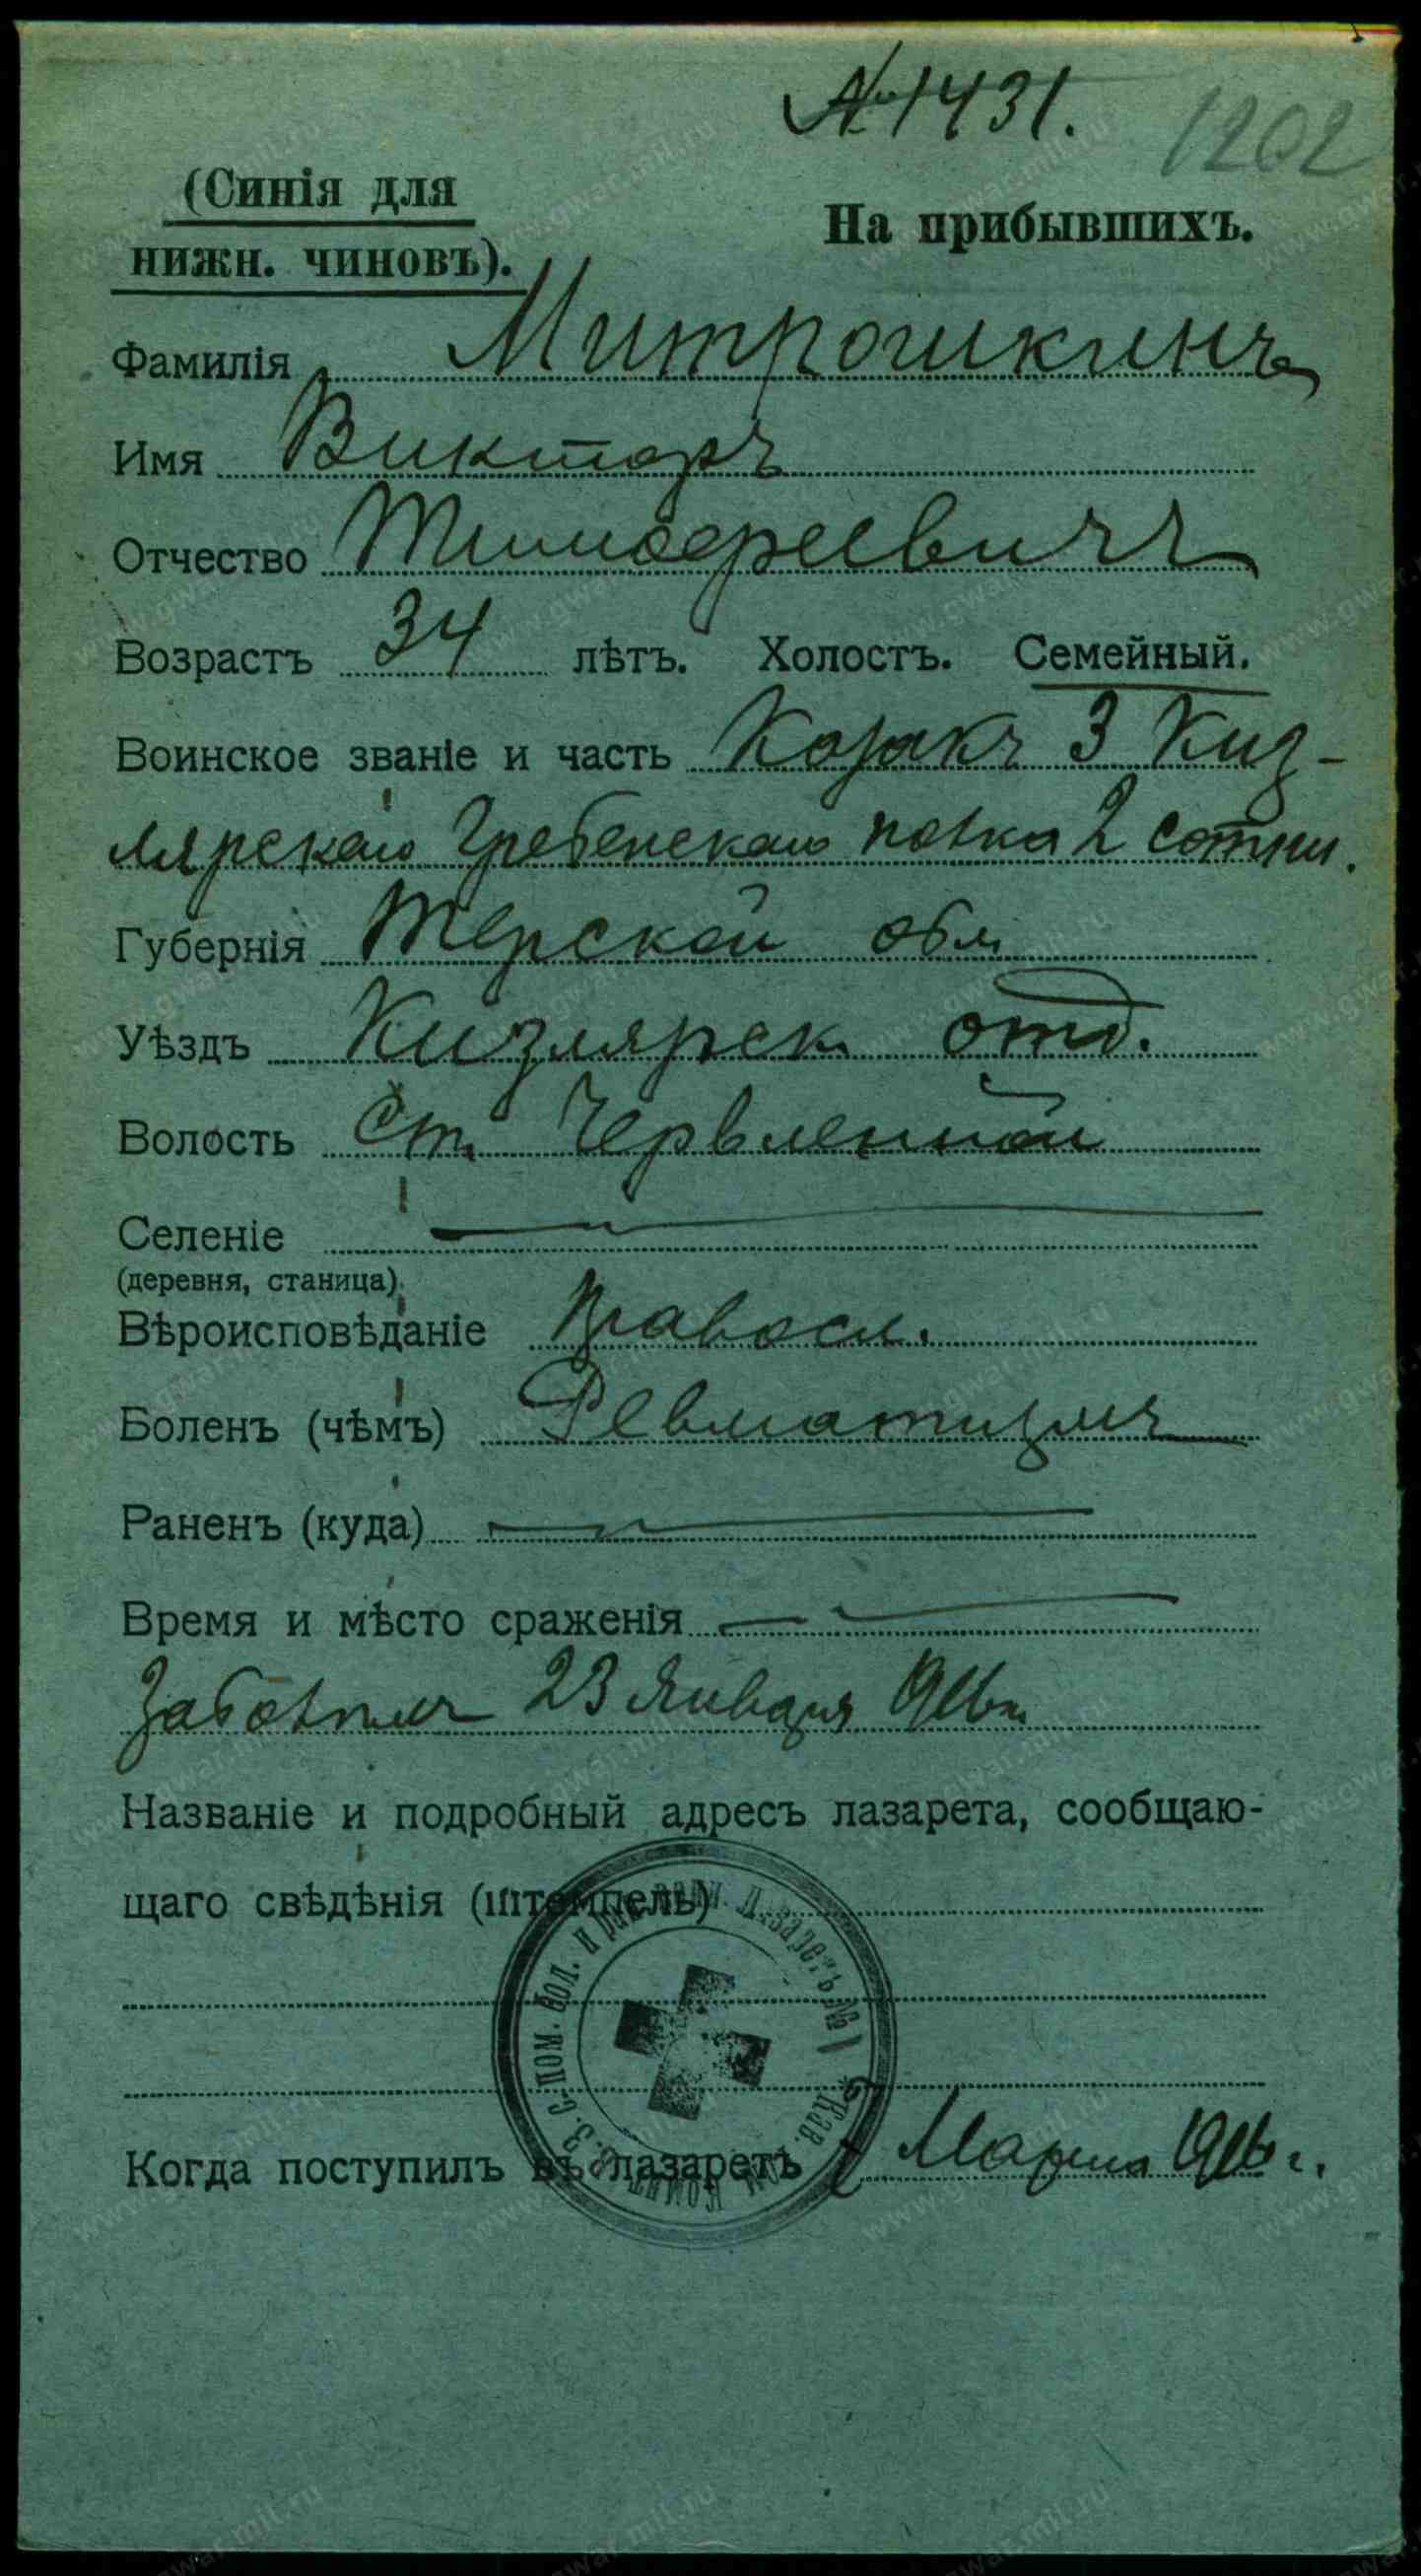 № 1431.
1202
(Синія для
нижн. чиновъ).
На прибывшихъ.
Фамилія Митрошкинъ
Имя Викторъ
Отчество Тимофеевичъ
Возрастъ 34 лѣтъ. Холостъ. Семейный.
Воинское званіе и часть Козакъ 3 Киз-
лярскаго Гребенскаго полка 2 сотни.
Губернія Терской обл.
Уѣздъ Кизлярск. отд.
Волость Ст. Червленной
Селеніе
(деревня, станица)
Вѣроисповѣданіе Правосл.
Боленъ (чѣмъ) Ревматизмъ
Раненъ (куда)
Время и мѣсто сраженія
23 Января 916 г.
Названіе и подробный адресъ лазарета, сообщаю-
щаго свѣдѣнія (штемпель)
Лазаретъ № 1 * Кав. Комит. В. З. С. пом. бол. и ран. воин.
Когда поступилъ въ лазаретъ Марта 1916 г.
www.gwar.mil.ru